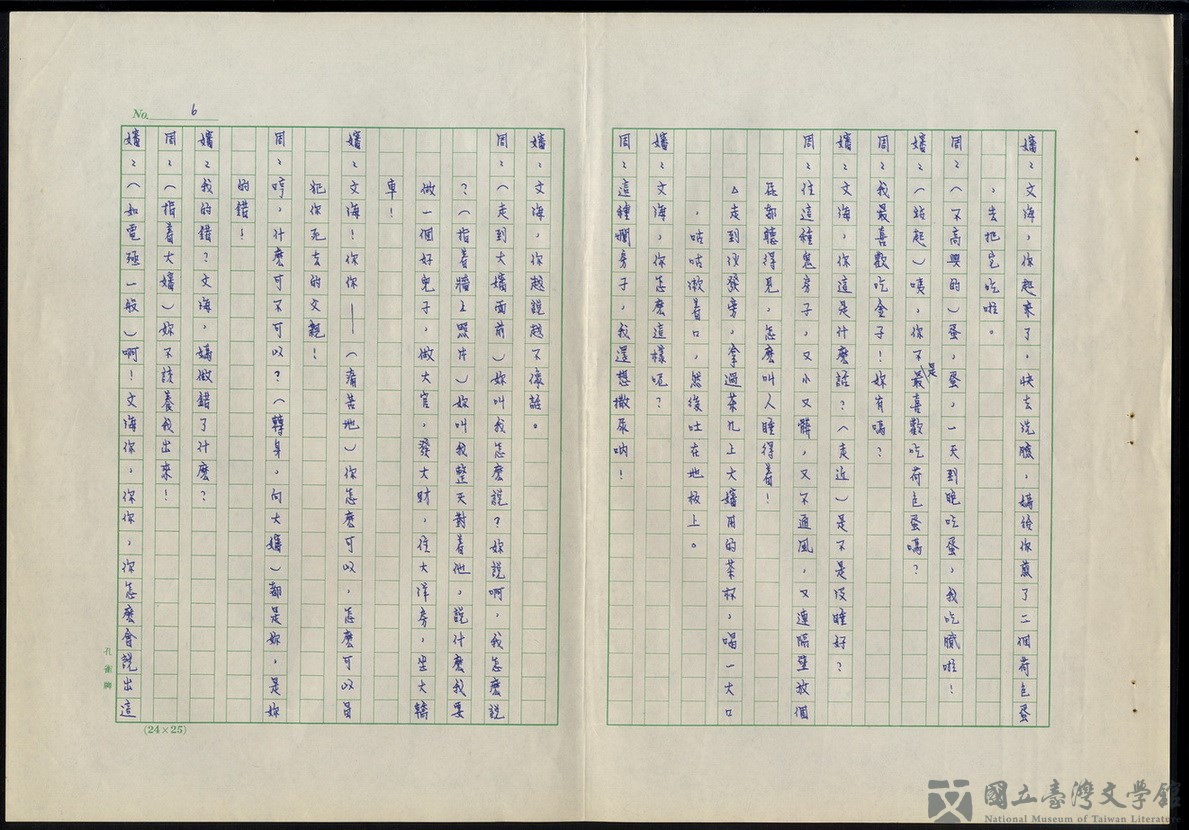 No. 6
嬸：文海，你起來了。快去洗臉，媽給你煎了二個荷包蛋
，去把它吃啦。
周：（不高興的）蛋，蛋，一天到晚吃蛋，我吃膩啦！
嬸：（站起）咦，你不是最喜歡吃荷包蛋嗎？
周：我最喜歡吃金子！妳有嗎？
嬸：文海，你這是什麼話？（走近）是不是沒睡好？
周：住這種鬼房子，又小又髒，又不通風，又連隔壁放個
屁都聽得見，怎麼叫人睡得着！
△走到沙發旁，拿過茶几上大嬸用的茶杯，喝一大口
，咕咕漱着口，然後吐在地板上。
嬸：文海，你怎麼這樣呃？
周：這種爛房子，我還想撒尿吶！
嬸：文海，你越說越不像話。
周：（走到大嬸面前）妳叫我怎麼說？妳說啊，我怎麼說
？（指着牆上照片）妳叫我整天對着他，說什麼我要
做一個好兒子，做大官，發大財，住大洋房，坐大轎
車！
嬸：文海！你你——（痛苦地）你怎麼可以，怎麼可以冒
犯你死去的父親！
周：哼，什麼可不可以？（轉身，向大嬸）都是妳，是妳
的錯！
嬸：我的錯？文海，媽做錯了什麼？
周：（指着大嬸）妳不該養我出來！
嬸：（如電殛一般）啊！文海你，你你，你怎麼會說出這
孔雀牌
(24×25)
國立臺灣文學館
National Museum of Taiwan Literature